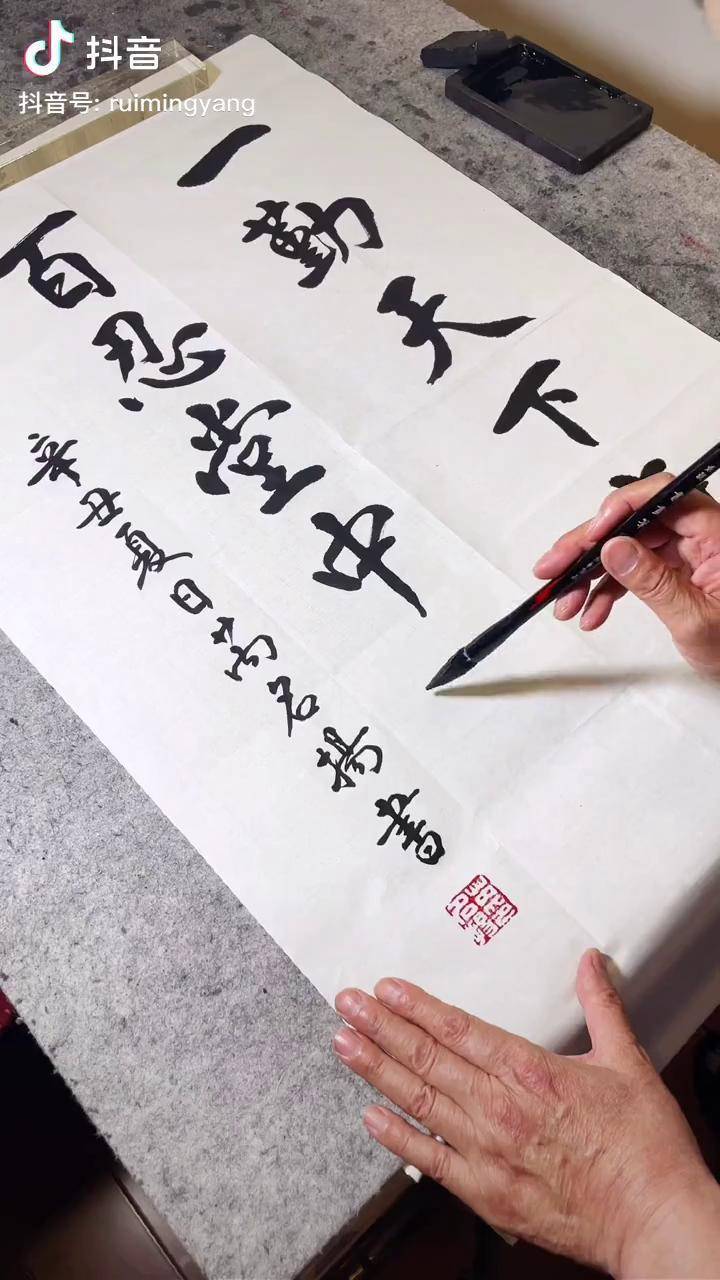 抖音
抖音号: ruimingyang
一勤天下
百忍堂中
辛丑夏日芮名揚書